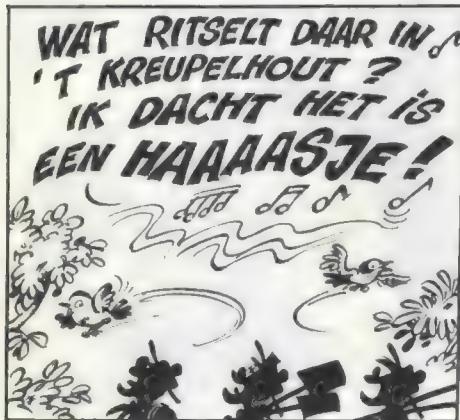 WAT RITSELT DAAR IN
'T KREUPELHOUT?
IK DACHT HET iS
EEN HAAAASJE!